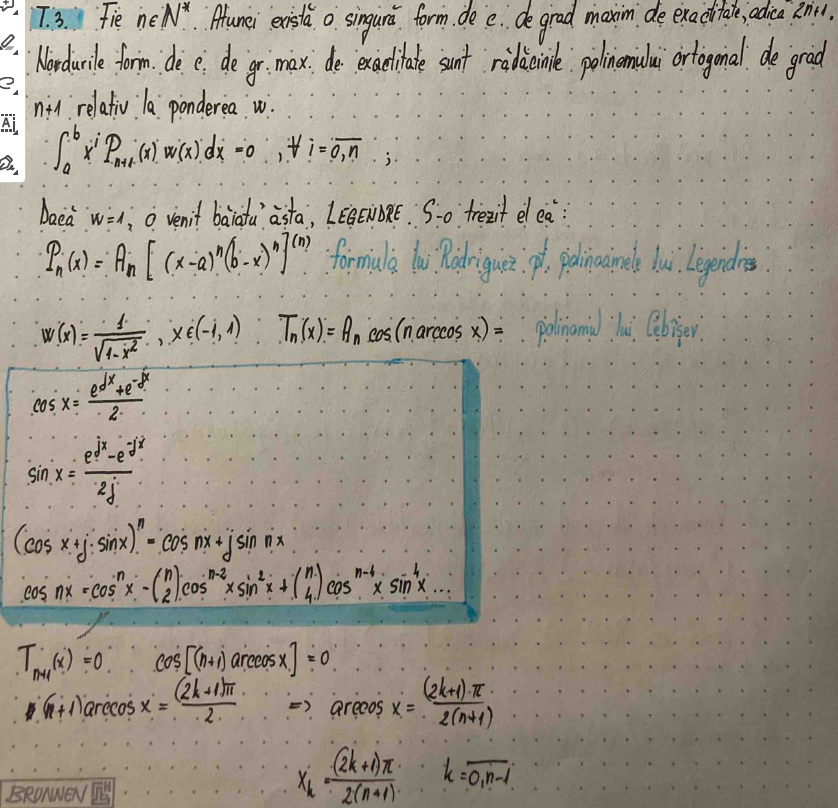 T.3. Fie n∈N*. Atunci există o singură form. de c. de grad maxim de exactitate, adică 2n+1.
Nordurile form. de c. de gr. max. de exactitate sunt rădăcinile polinomului ortogonal de grad
n+1 relativ la ponderea w.
∫_a^b x^i P_{n+1}(x) w(x) dx = 0 , ∀ i = \overline{0,n} ;
Dacă w=1, o venit băiatu' ăsta, LEGENDRE. S-o trezit el că:
P_n(x) = A_n [ (x-a)^n (b-x)^n ]^{(n)} formula lui Rodriguez pt. polinoamele lui Legendre.
w(x) = \frac{1}{\sqrt{1-x^2}} , x∈(-1,1) T_n(x) = A_n cos(n arccos x) = polinomul lui Cebîșev
cos x = \frac{e^{jx}+e^{-jx}}{2}
sin x = \frac{e^{jx}-e^{-jx}}{2j}
(cos x + j·sin x)^n = cos nx + j sin nx
cos nx = cos^n x - \binom{n}{2} cos^{n-2} x sin^2 x + \binom{n}{4} cos^{n-4} x sin^4 x ...
T_{n+1}(x) = 0 cos[(n+1) arccos x] = 0
(n+1) arccos x = \frac{(2k+1)π}{2} => arccos x = \frac{(2k+1)·π}{2(n+1)}
x_k = \frac{(2k+1)π}{2(n+1)} k = \overline{0,n-1}
BRUNNEN